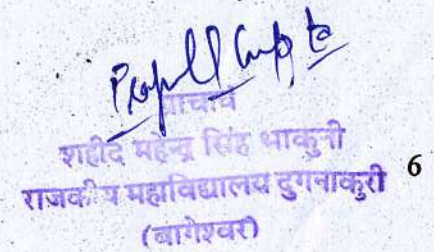 Gupta
प्राचार्य
शहीद महेन्द्र सिंह भाकुनी
राजकीय महाविद्यालय दुगनाकुरी 6
(बागेश्वर)